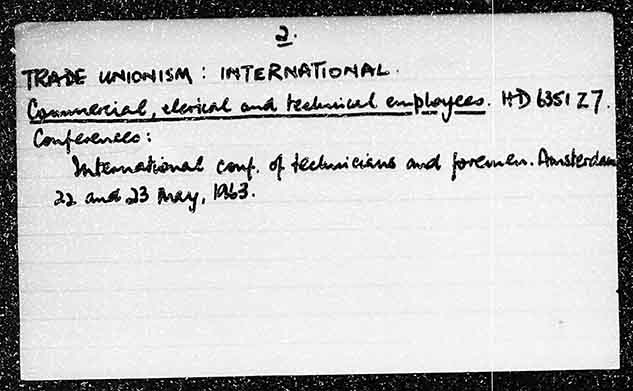 2.
TRADE UNIONISM: INTERNATIONAL.
Commercial, clerical and technical employees. HD 6351 Z7.
Conferences:
International conf. of technicians and foremen. Amsterdam
22 and 23 May, 1963.